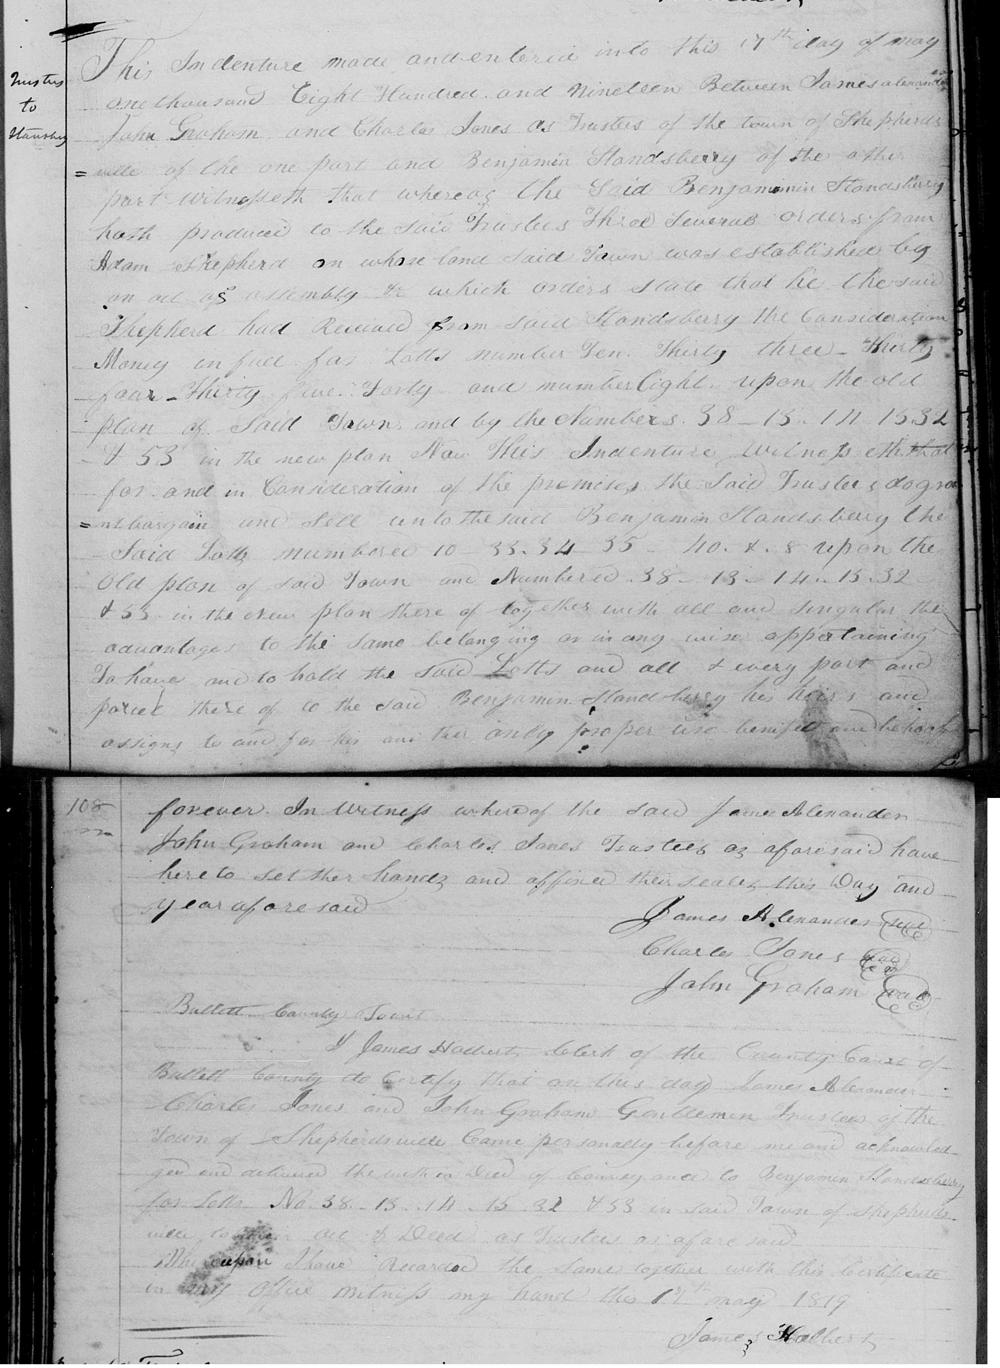 This Indenture made and entered into this 17th day of may
Trustees
to
Standsberry
one thousand Eight Hundred and Nineteen Between James alexander
John Graham and Charles Jones as Trustees of the town of Shepherds
=ville of the one part and Benjamin Standsberry of the other
part Witnesseth that whereas the Said Benjaminin Standsberry
hath produced to the said Trustees Three Several orders from
Adam Shepherd on whose land said Town was established by
an act of assembly & which orders state that he the said
Shepherd had Received from said Standsberry the Consideration
Money in full for Lotts number Ten. Thirty three - Thirty
four - Thirty five. Forty and number Eight. upon the old
plan of Said Town and by the Numbers. 38 - 13 - 14 - 15 32
& 53 in the new plan Now This Indenture Witnesseth that
for and in Consideration of the premises the Said Trustees do gra
=nt bargain and Sell unto the said Benjamin Standsberry the
Said Lotts numbered 10 - 33. 34 - 35 - 40. & 8 upon the
Old plan of said Town and Numbered 38 - 13 - 14 - 15. 32
& 53 in the new plan there of together with all and singular the
advantages to the same belonging or in any wise appertaining
To have and to hold the said Lotts and all & every part and
parcel there of to the said Benjamin Standsberry his heirs and
assigns to and for his and their only proper use benifit and behoof
108
forever. In Witness where of the said James Alexander
John Graham and Charles Jones Trustees as aforesaid have
here to set ther hands and affixed their seales this Day and
year afore said
James Alexander seal
Charles Jones seal
John Graham seal
Bullett County Court
I James Halbert Clerk of the County Court of
Bullett County do Certify that on this day James Alexander
Charles Jones and John Graham Gentlemen Trustees of the
Town of Shepherdsville Came personally before me and acknowled
ged and delivered the with in Deed of Conveyance to Benjamin Standsberry
for Lotts No. 38 - 13 - 14 - 15 32 & 53 in said Town of Shepherds
ville to their act & Deed as Trustees as afore said
Where upon I have Recorded the same together with this Certificate
in my Office Witness my hand this 17th may 1819
James Halbert